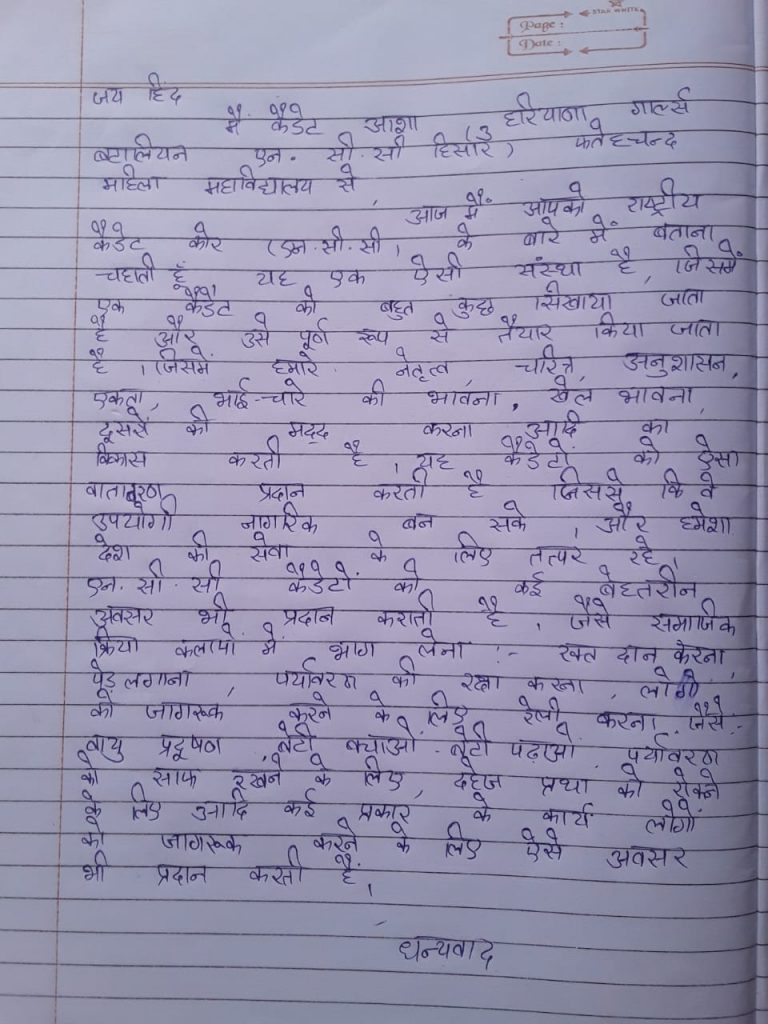 STAR WHITE
Page :
Date :
जय हिंद
मैं कैडेट आशा (3 हरियाणा गर्ल्स
बटालियन एन. सी. सी हिसार) फतेहचन्द
महिला महाविद्यालय से,
आज मैं आपको राष्ट्रीय
कैडेट कोर (एन.सी.सी, के बारे में बताना
चहाती हूँ यह एक ऐसी संस्था है, जिसमें
एक कैडेट को बहुत कुछ सिखाया जाता
है और उसे पूर्ण रूप से तैयार किया जाता
है, जिसमें हमारे नेतृत्व, चरित्र, अनुशासन,
एकता, भाई-चारे की भावना, खेल भावना,
दूसरों की मद्द करना आदि का
विकास करती है, यह कैडेटों को ऐसा
वातावरण प्रदान करती है जिससे कि वे
उपयोगी नागरिक बन सके, और हमेशा
देश की सेवा के लिए तत्पर रहे,
एन. सी. सी कैडेटों को कई बेहतरीन
अवसर भी प्रदान कराती है, जैसे समाजिक
क्रिया कलापों में भाग लेना :- रक्त दान करना,
पेड़ लगाना, पर्यावरण की रक्षा करना, लोगों
को जागरूक करने के लिए रैली करना, जैसे :-
वायु प्रदूषण, बेटी बचाओ - बेटी पढ़ाओ, पर्यावरण
को साफ रखने के लिए, दहेज प्रथा को रोकने
के लिए आदि कई प्रकार के कार्य लोगों
को जागरूक करने के लिए ऐसे अवसर
भी प्रदान करती हैं,
धन्यवाद